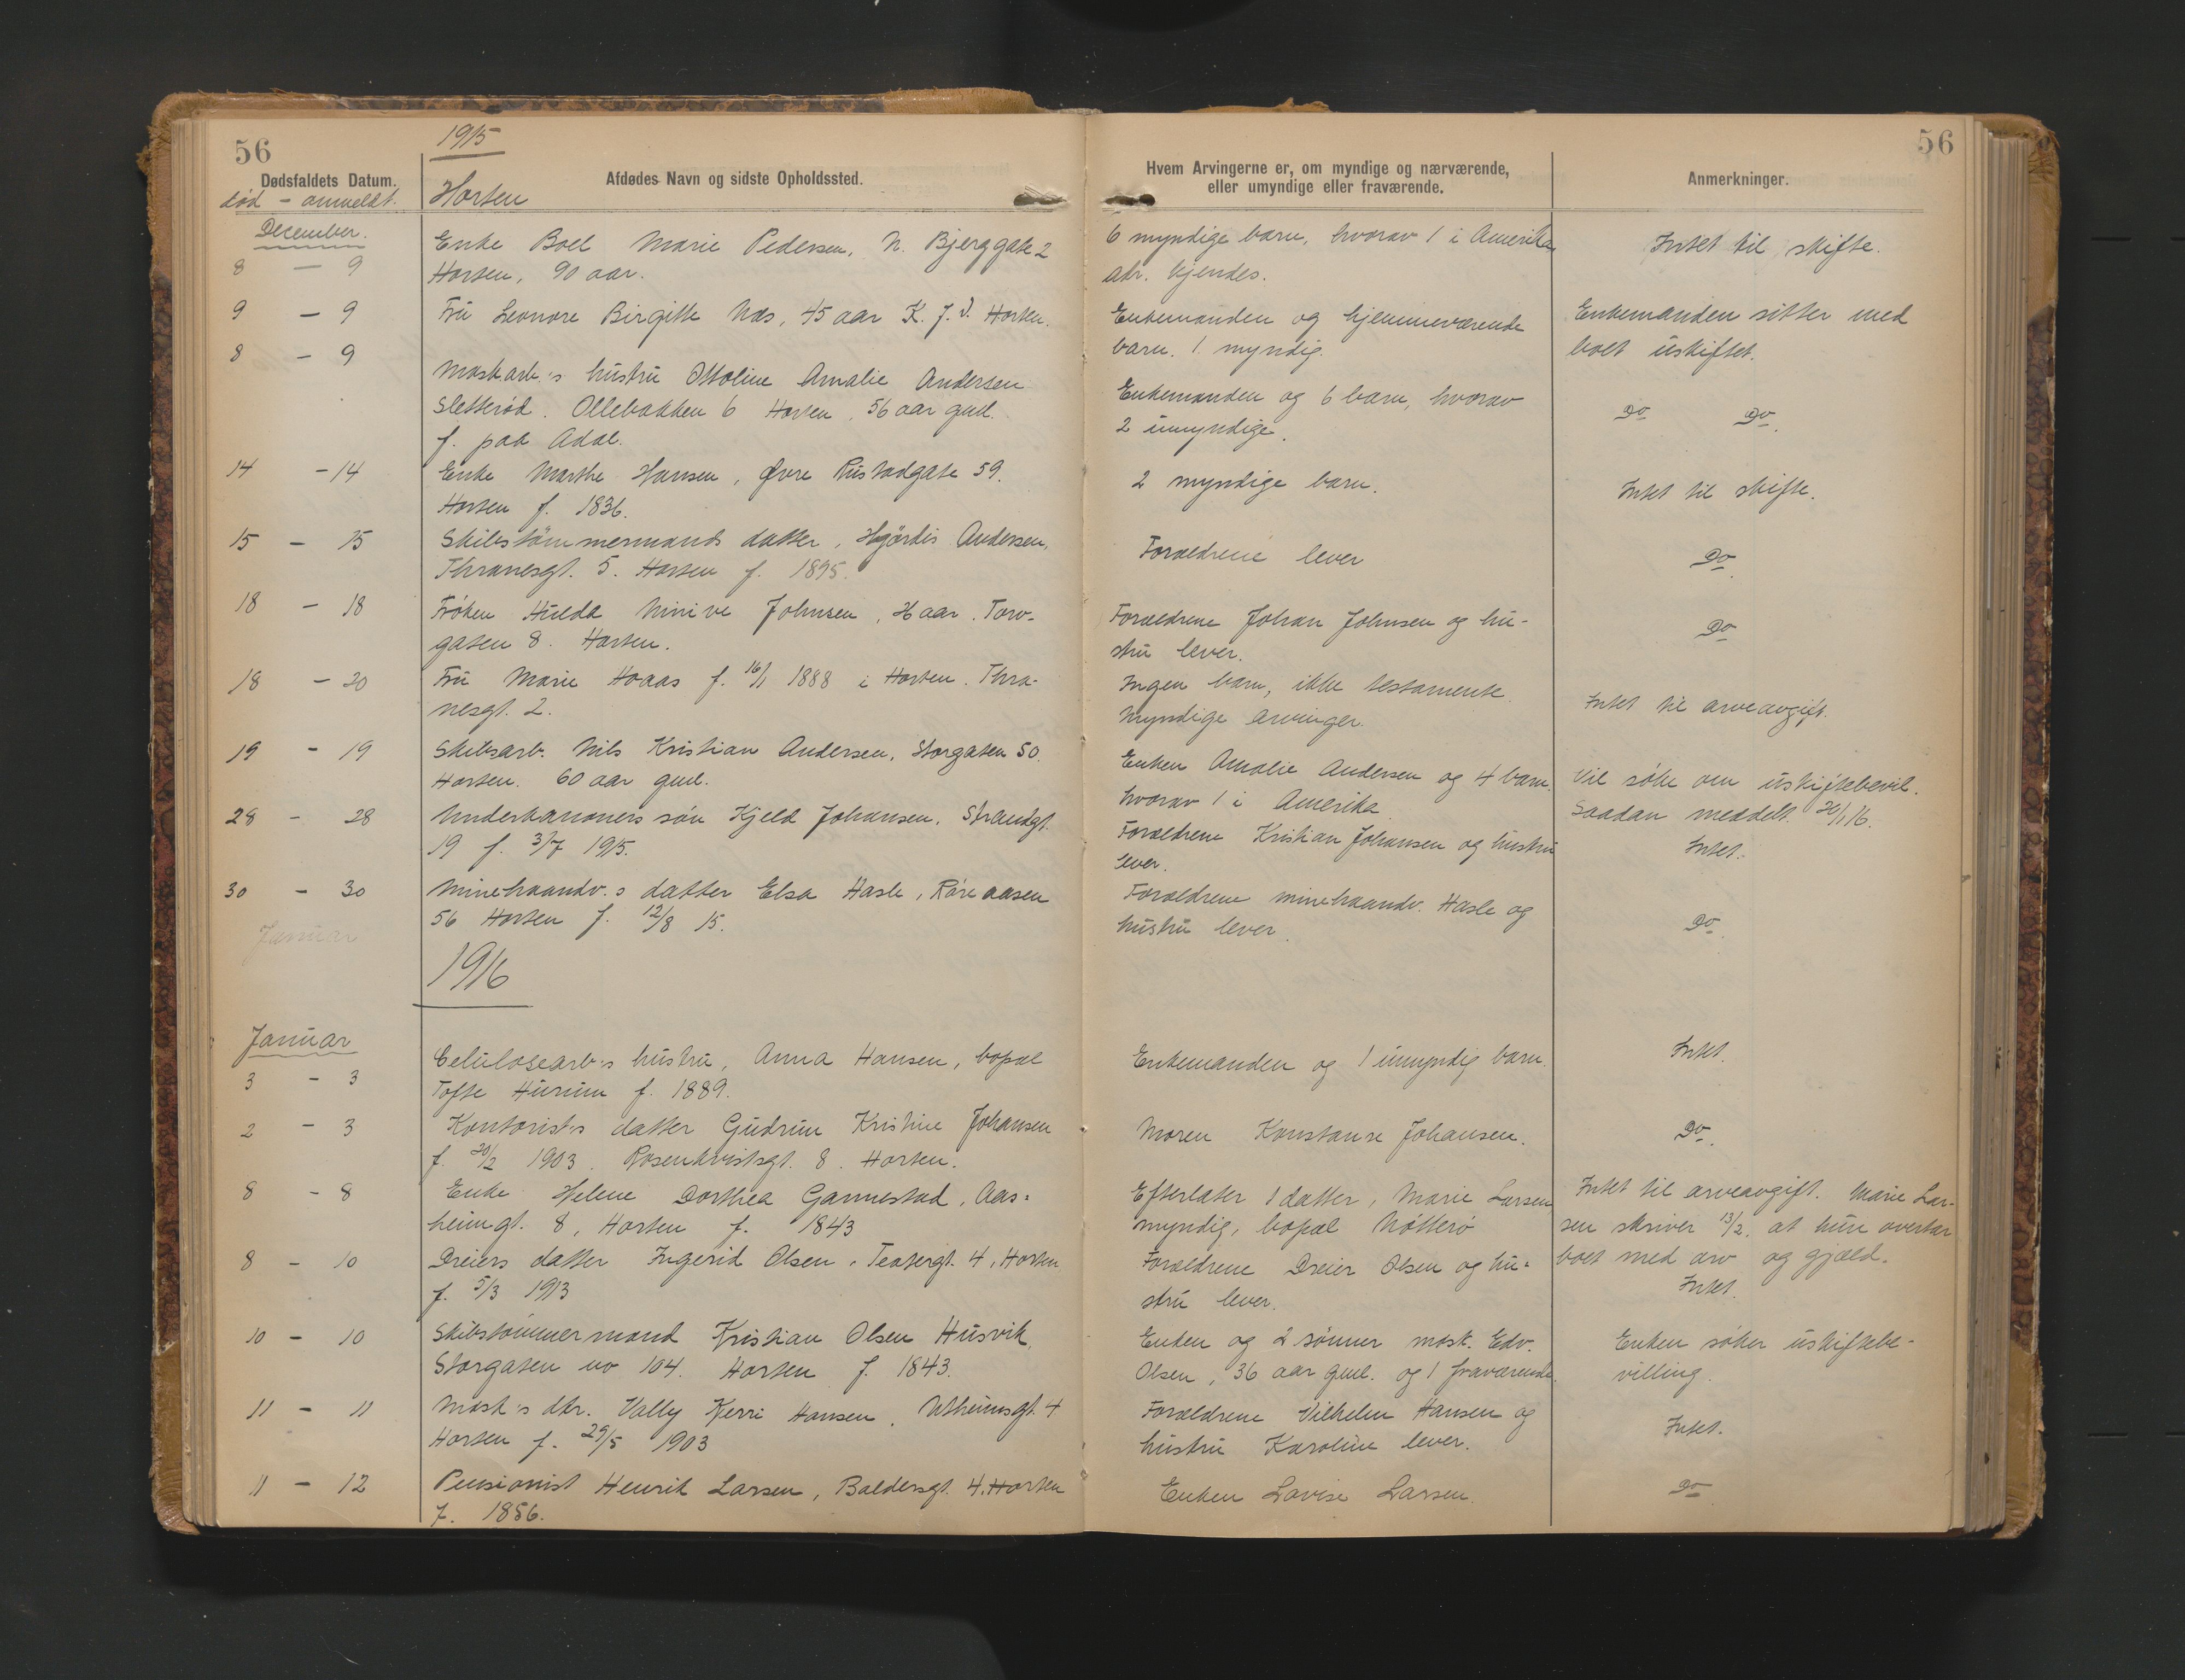 56
1915
Dødsfaldets Datum.
død - anmeldt.
Afdødes Navn og sidste Opholdssted.
Horten
Hvem Arvingerne er, om myndige og nærværende,
eller umyndige eller fraværende.
Anmerkninger.
56
December.
8 - 9
Enke Boel Marie Pedersen, N. Bjerggate 2
Horten, 90 aar.
6 myndige barn, hvorav 1 i Amerika
adr. kjendes.
Intet til skifte.
9 - 9
Fru Leonore Birgitte Næs, 45 aar K. J. V. Horten.
Enkemanden og hjemmeværende
barn. 1 myndig.
Enkemanden sitter med
boet uskiftet.
8 - 9
Maskarb.'s hustru Ottoline Amalie Andersen
Sletterød. Ollebakken 6 Horten, 56 aar gml.
f. paa Adal.
Enkemanden og 6 barn, hvorav
2 umyndige.
Do Do.
14 - 14
Enke Marthe Hansen, Øvre Rustadgate 59.
Horten f. 1836.
2 myndige barn.
Intet til skifte.
15 - 15
Skibstömmermands datter, Hjördis Andersen,
Thranesgt. 5. Horten f. 1895.
Forældrene lever
Do.
18 - 18
Fröken Hulda Ninive Johnsen, aar. Torv-
gaten 8. Horten.
Forældrene Johan Johnsen og hu-
stru lever.
Do
18 - 20
Fru Marie Haaas f. 16/1 1888 i Horten. Thra-
nesgt. 2.
Ingen barn, ikke testamente
Myndige arvinger.
Intet til arveavgift.
19 - 19
Skibsarb. Nils Kristian Andersen, Storgaten 50.
Horten. 60 aar gml.
Enken Amalie Andersen og 4 barn.
hvorav 1 i Amerika.
Vil söke om uskiftebevil.
Saadan meddelt 20/1 16.
28 - 28
Underkanoners sön Kjeld Johansen. Strandgt.
19 f. 3/7 1915.
Forældrene Kristian Johansen og hustru
lever.
Intet.
30 - 30
Minehaandv.s datter Elsa Hasle, Röreaasen
56 Horten f. 12/8 15.
Forældrene minehaandv. Hasle og
hustru lever.
Do.
Januar
1916
Januar
3 - 3
Celulosearb's hustru, Anna Hansen, bopæl
Tofte Hurum f. 1889.
Enkemanden og 1 umyndig barn.
Intet.
2 - 3
Kontorist's datter Gudrun Kristine Johansen
f. 20/2 1903. Rosenkvistsgt. 8. Horten.
Moren Konstanse Johansen.
Do.
8 - 8
Enke Helene Dorthea Gannestad, Aas=
heimgt. 8, Horten f. 1843
Efterlater 1 datter, Marie Larsen
myndig, bopæl Nötterö
Intet til arveavgift. Marie Lar-
sen skriver 13/2. at hun overtar
boet med arv og gjæld.
8 - 10
Dreiers datter Ingerid Olsen, Teatergt. 4, Horten
f. 5/3 1913
Forældrene Dreier Olsen og hu=
stru lever.
Intet.
10 - 10
Skibstömmermand Kristian Olsen Husvik,
Storgaten no 104. Horten f. 1843.
Enken og 2 sönner mask. Edv.
Olsen, 36 aar gml. og 1 fraværende.
Enken söker uskiftebe-
villing.
11 - 11
Mask's dtr. Vally Kerri Hansen, Utheimsgt. 4
Horten f. 29/5 1903
Forældrene Vilhelm Hansen og
hustru Karoline lever.
Intet.
11 - 12
Pensionist Henrik Larsen, Baldersgt. 4. Horten
f. 1856.
Enken Lovise Larsen.
Do